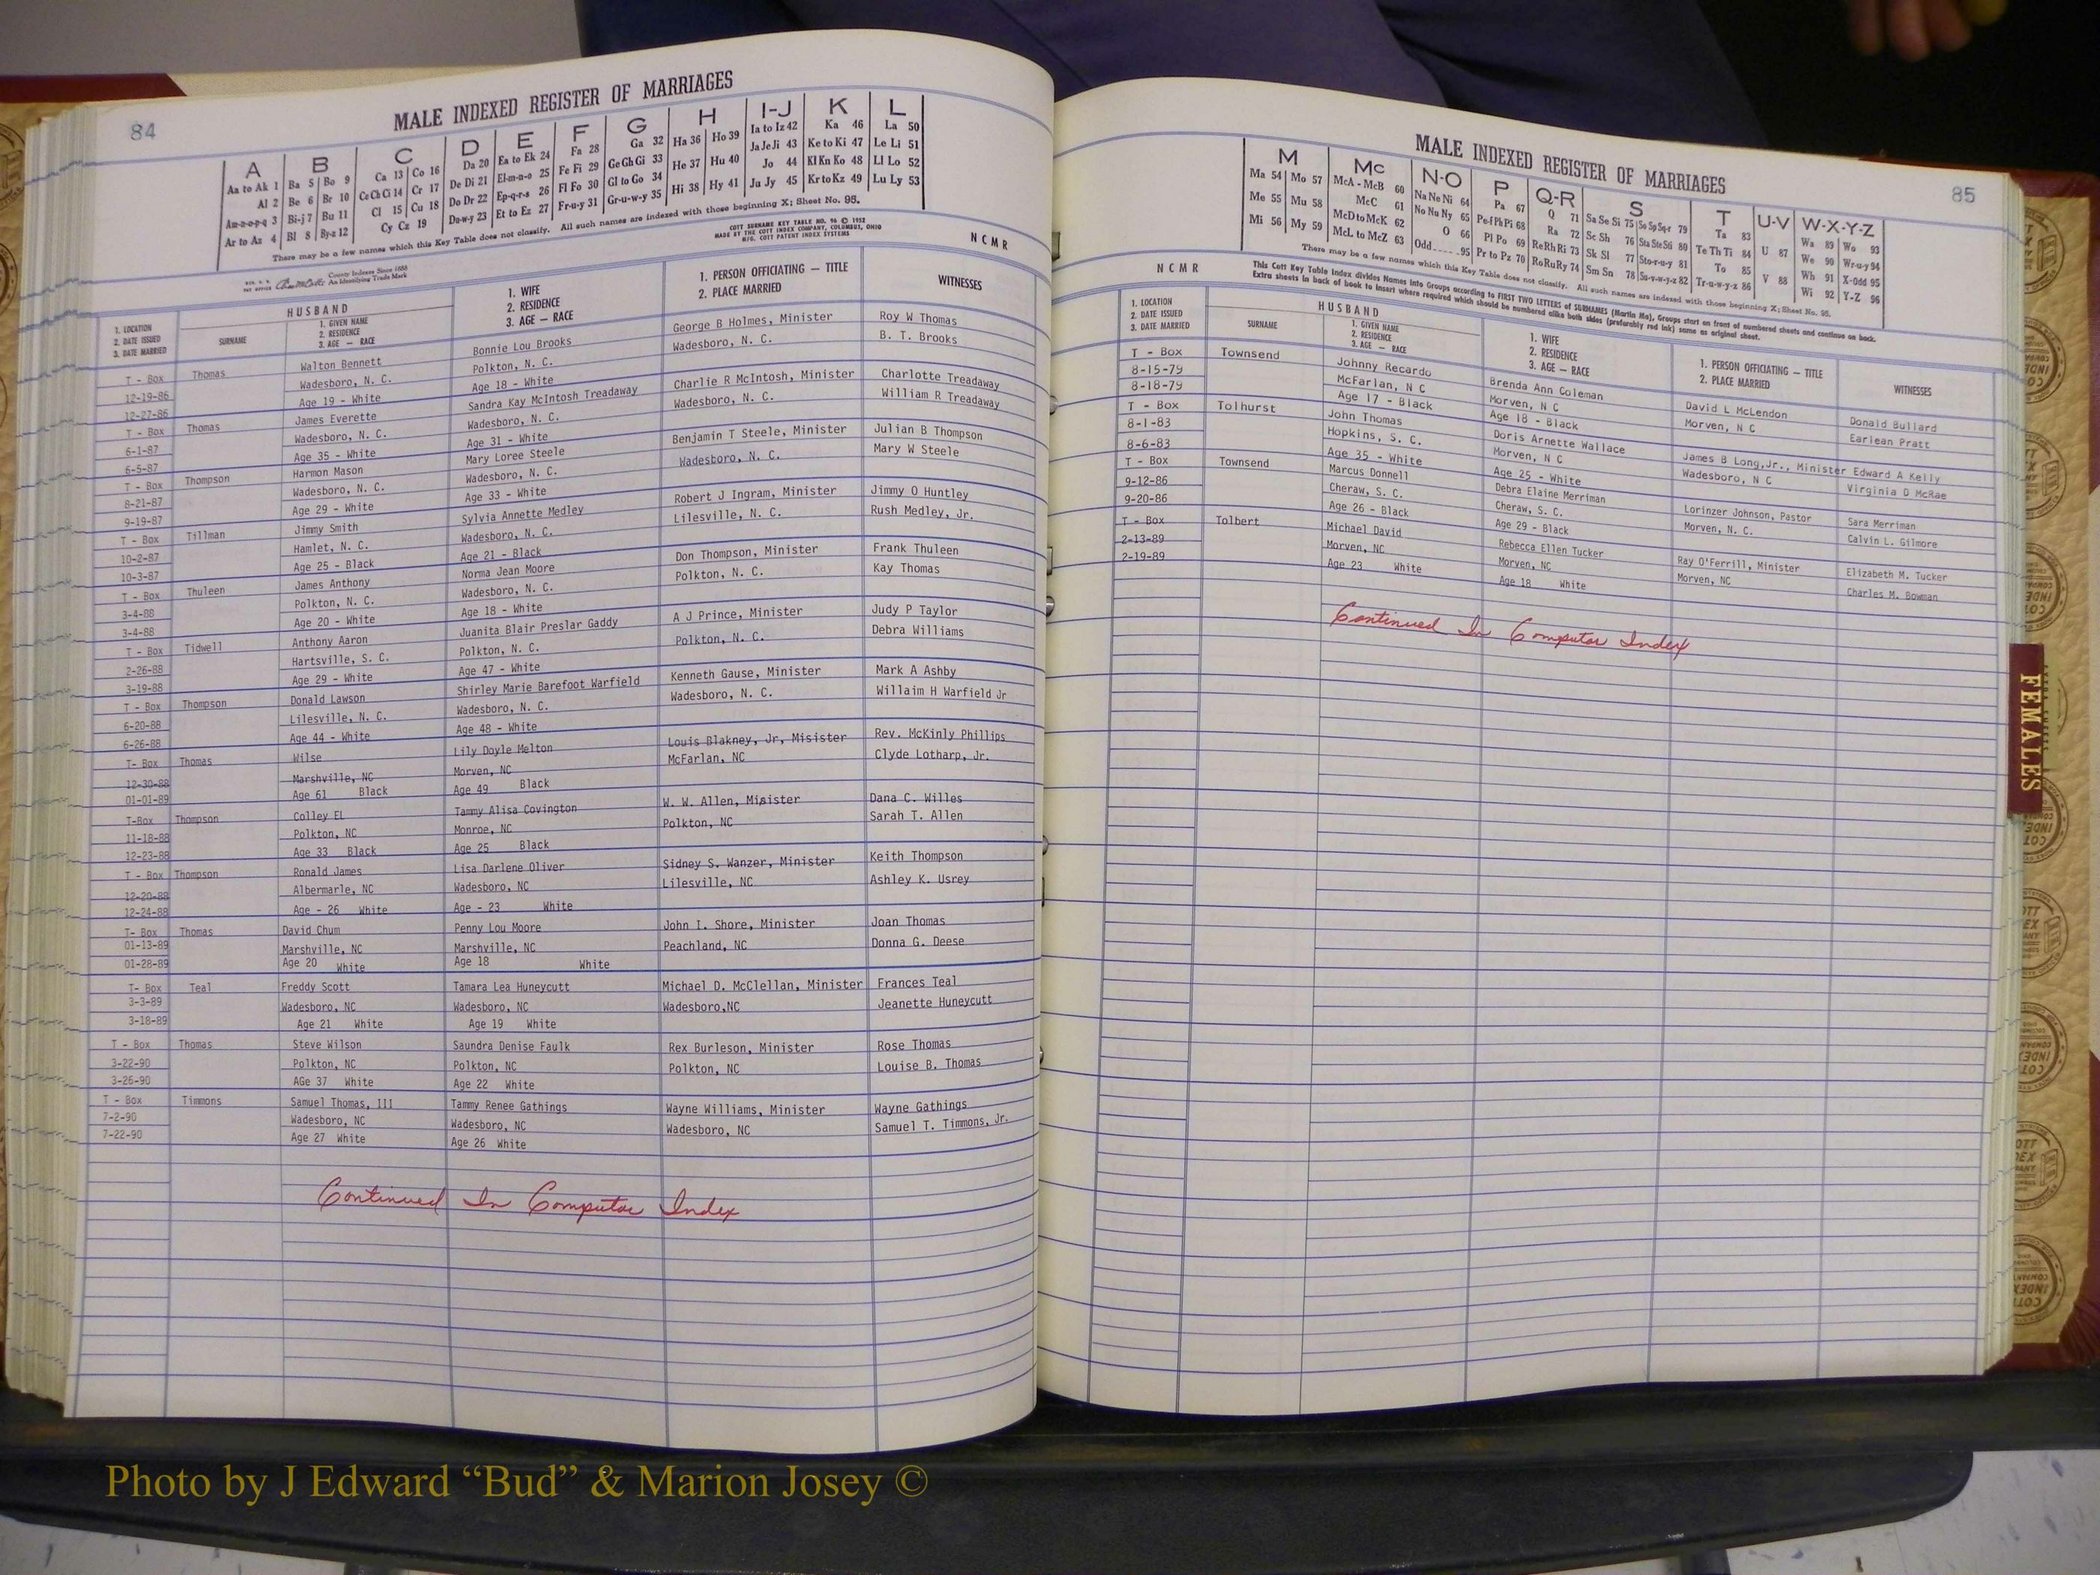 84
MALE INDEXED REGISTER OF MARRIAGES
A B C D E F G H I-J K L
Aa to Ak 1 Ba 5 Bo 9 Ca 13 Co 16 Da 20 Ea to Ek 24 Fa 28 Ga 32 Ha 36 Ho 39 Ia to Iz 42 Ka 46 La 50
Al 2 Be 6 Br 10 Ce Ch Ci 14 Cr 17 De Di 21 El-m-n-o 25 Fe Fi 29 Ge Gh Gi 33 He 37 Hu 40 Ja Je Ji 43 Ke to Ki 47 Le Li 51
Am-n-o-p-q 3 Bi-j 7 Bu 11 Cl 15 Cu 18 Do Dr 22 Ep-q-r-s 26 Fl Fo 30 Gl to Go 34 Hi 38 Hy 41 Jo 44 Kl Kn Ko 48 Ll Lo 52
Ar to Az 4 Bl 8 By-z 12 Cy Cz 19 Du-w-y 23 Et to Ez 27 Fr-u-y 31 Gr-u-w-y 35 Ju Jy 45 Kr to Kz 49 Lu Ly 53
There may be a few names which this Key Table does not classify. All such names are indexed with those beginning X; Sheet No. 95.
COTT SURNAME KEY TABLE NO. 96 © 1952
MADE BY THE COTT INDEX COMPANY, COLUMBUS, OHIO
MFG. COTT PATENT INDEX SYSTEMS
NCMR
County Indexes Since 1888
An Identifying Trade Mark
HUSBAND
1. LOCATION
2. DATE ISSUED
3. DATE MARRIED
SURNAME
1. GIVEN NAME
2. RESIDENCE
3. AGE — RACE
1. WIFE
2. RESIDENCE
3. AGE — RACE
1. PERSON OFFICIATING — TITLE
2. PLACE MARRIED
WITNESSES
T - Box Thomas Walton Bennett Bonnie Lou Brooks George B Holmes, Minister Roy W Thomas
12-19-86 Wadesboro, N. C. Polkton, N. C. Wadesboro, N. C. B. T. Brooks
12-27-86 Age 19 - White Age 18 - White
T - Box Thomas James Everette Sandra Kay McIntosh Treadaway Charlie R McIntosh, Minister Charlotte Treadaway
6-1-87 Wadesboro, N. C. Wadesboro, N. C. Wadesboro, N. C. William R Treadaway
6-5-87 Age 35 - White Age 31 - White
T - Box Thompson Harmon Mason Mary Loree Steele Benjamin T Steele, Minister Julian B Thompson
8-21-87 Wadesboro, N. C. Wadesboro, N. C. Wadesboro, N. C. Mary W Steele
9-19-87 Age 29 - White Age 33 - White
T - Box Tillman Jimmy Smith Sylvia Annette Medley Robert J Ingram, Minister Jimmy O Huntley
10-2-87 Hamlet, N. C. Wadesboro, N. C. Lilesville, N. C. Rush Medley, Jr.
10-3-87 Age 25 - Black Age 21 - Black
T - Box Thuleen James Anthony Norma Jean Moore Don Thompson, Minister Frank Thuleen
3-4-88 Polkton, N. C. Wadesboro, N. C. Polkton, N. C. Kay Thomas
3-4-88 Age 20 - White Age 18 - White
T - Box Tidwell Anthony Aaron Juanita Blair Preslar Gaddy A J Prince, Minister Judy P Taylor
2-26-88 Hartsville, S. C. Polkton, N. C. Polkton, N. C. Debra Williams
3-19-88 Age 29 - White Age 47 - White
T - Box Thompson Donald Lawson Shirley Marie Barefoot Warfield Kenneth Gause, Minister Mark A Ashby
6-20-88 Lilesville, N. C. Wadesboro, N. C. Wadesboro, N. C. Willaim H Warfield Jr
6-26-88 Age 44 - White Age 48 - White
T- Box Thomas Wilse Lily Doyle Melton Louis Blakney, Jr, Misister Rev. McKinly Phillips
12-30-88 Marshville, NC Morven, NC McFarlan, NC Clyde Lotharp, Jr.
01-01-89 Age 61 Black Age 49 Black
T-Box Thompson Colley EL Tammy Alisa Covington W. W. Allen, Minister Dana C. Willes
11-18-88 Polkton, NC Monroe, NC Polkton, NC Sarah T. Allen
12-23-88 Age 33 Black Age 25 Black
T - Box Thompson Ronald James Lisa Darlene Oliver Sidney S. Wanzer, Minister Keith Thompson
12-20-88 Albermarle, NC Wadesboro, NC Lilesville, NC Ashley K. Usrey
12-24-88 Age - 26 White Age - 23 White
T- Box Thomas David Chum Penny Lou Moore John I. Shore, Minister Joan Thomas
01-13-89 Marshville, NC Marshville, NC Peachland, NC Donna G. Deese
01-28-89 Age 20 White Age 18 White
T- Box Teal Freddy Scott Tamara Lea Huneycutt Michael D. McClellan, Minister Frances Teal
3-3-89 Wadesboro, NC Wadesboro, NC Wadesboro,NC Jeanette Huneycutt
3-18-89 Age 21 White Age 19 White
T - Box Thomas Steve Wilson Saundra Denise Faulk Rex Burleson, Minister Rose Thomas
3-22-90 Polkton, NC Polkton, NC Polkton, NC Louise B. Thomas
3-26-90 AGe 37 White Age 22 White
T - Box Timmons Samuel Thomas, III Tammy Renee Gathings Wayne Williams, Minister Wayne Gathings
7-2-90 Wadesboro, NC Wadesboro, NC Wadesboro, NC Samuel T. Timmons, Jr.
7-22-90 Age 27 White Age 26 White
Continued In Computor Index
MALE INDEXED REGISTER OF MARRIAGES
85
M Mc N-O P Q-R S T U-V W-X-Y-Z
Ma 54 Mo 57 McA - McB 60 Na Ne Ni 64 Pa 67 Q 71 Sa Se Si 75 So Sp Sq-r 79 Ta 83 U 87 Wa 89 Wo 93
Me 55 Mu 58 McC 61 No Nu Ny 65 Pe-f Ph Pi 68 Ra 72 Sc Sh 76 Sta Ste Sti 80 Te Th Ti 84 We 90 Wr-u-y 94
Mi 56 My 59 McD to McK 62 O 66 Pl Po 69 Re Rh Ri 73 Sk Sl 77 Sto-r-u-y 81 To 85 V 88 Wh 91 X-Odd 95
McL to McZ 63 Odd 95 Pr to Pz 70 Ro Ru Ry 74 Sm Sn 78 Su-v-w-y-z 82 Tr-u-w-y-z 86 Wi 92 Y-Z 96
There may be a few names which this Key Table does not classify. All such names are indexed with those beginning X; Sheet No. 95.
NCMR
This Cott Key Table Index divides Names into Groups according to FIRST TWO LETTERS of SURNAMES (Martin Ma), Groups start on front of numbered sheets and continue on back.
Extra sheets in back of book to insert where required which should be numbered alike both sides (preferably red ink) same as original sheet.
HUSBAND
1. LOCATION
2. DATE ISSUED
3. DATE MARRIED
SURNAME
1. GIVEN NAME
2. RESIDENCE
3. AGE — RACE
1. WIFE
2. RESIDENCE
3. AGE — RACE
1. PERSON OFFICIATING — TITLE
2. PLACE MARRIED
WITNESSES
T - Box Townsend Johnny Recardo Brenda Ann Coleman David L McLendon Donald Bullard
8-15-79 McFarlan, N C Morven, N C Morven, N C Earlean Pratt
8-18-79 Age 17 - Black Age 18 - Black
T - Box Tolhurst John Thomas Doris Arnette Wallace James B Long,Jr., Minister Edward A Kelly
8-1-83 Hopkins, S. C. Morven, N C Wadesboro, N C Virginia D McRae
8-6-83 Age 35 - White Age 25 - White
T - Box Townsend Marcus Donnell Debra Elaine Merriman Lorinzer Johnson, Pastor Sara Merriman
9-12-86 Cheraw, S. C. Cheraw, S. C. Morven, N. C. Calvin L. Gilmore
9-20-86 Age 26 - Black Age 29 - Black
T - Box Tolbert Michael David Rebecca Ellen Tucker Ray O'Ferrill, Minister Elizabeth M. Tucker
2-13-89 Morven, NC Morven, NC Morven, NC Charles M. Bowman
2-19-89 Age 23 White Age 18 White
Continued In Computor Index
FEMALES
Photo by J Edward “Bud” & Marion Josey ©